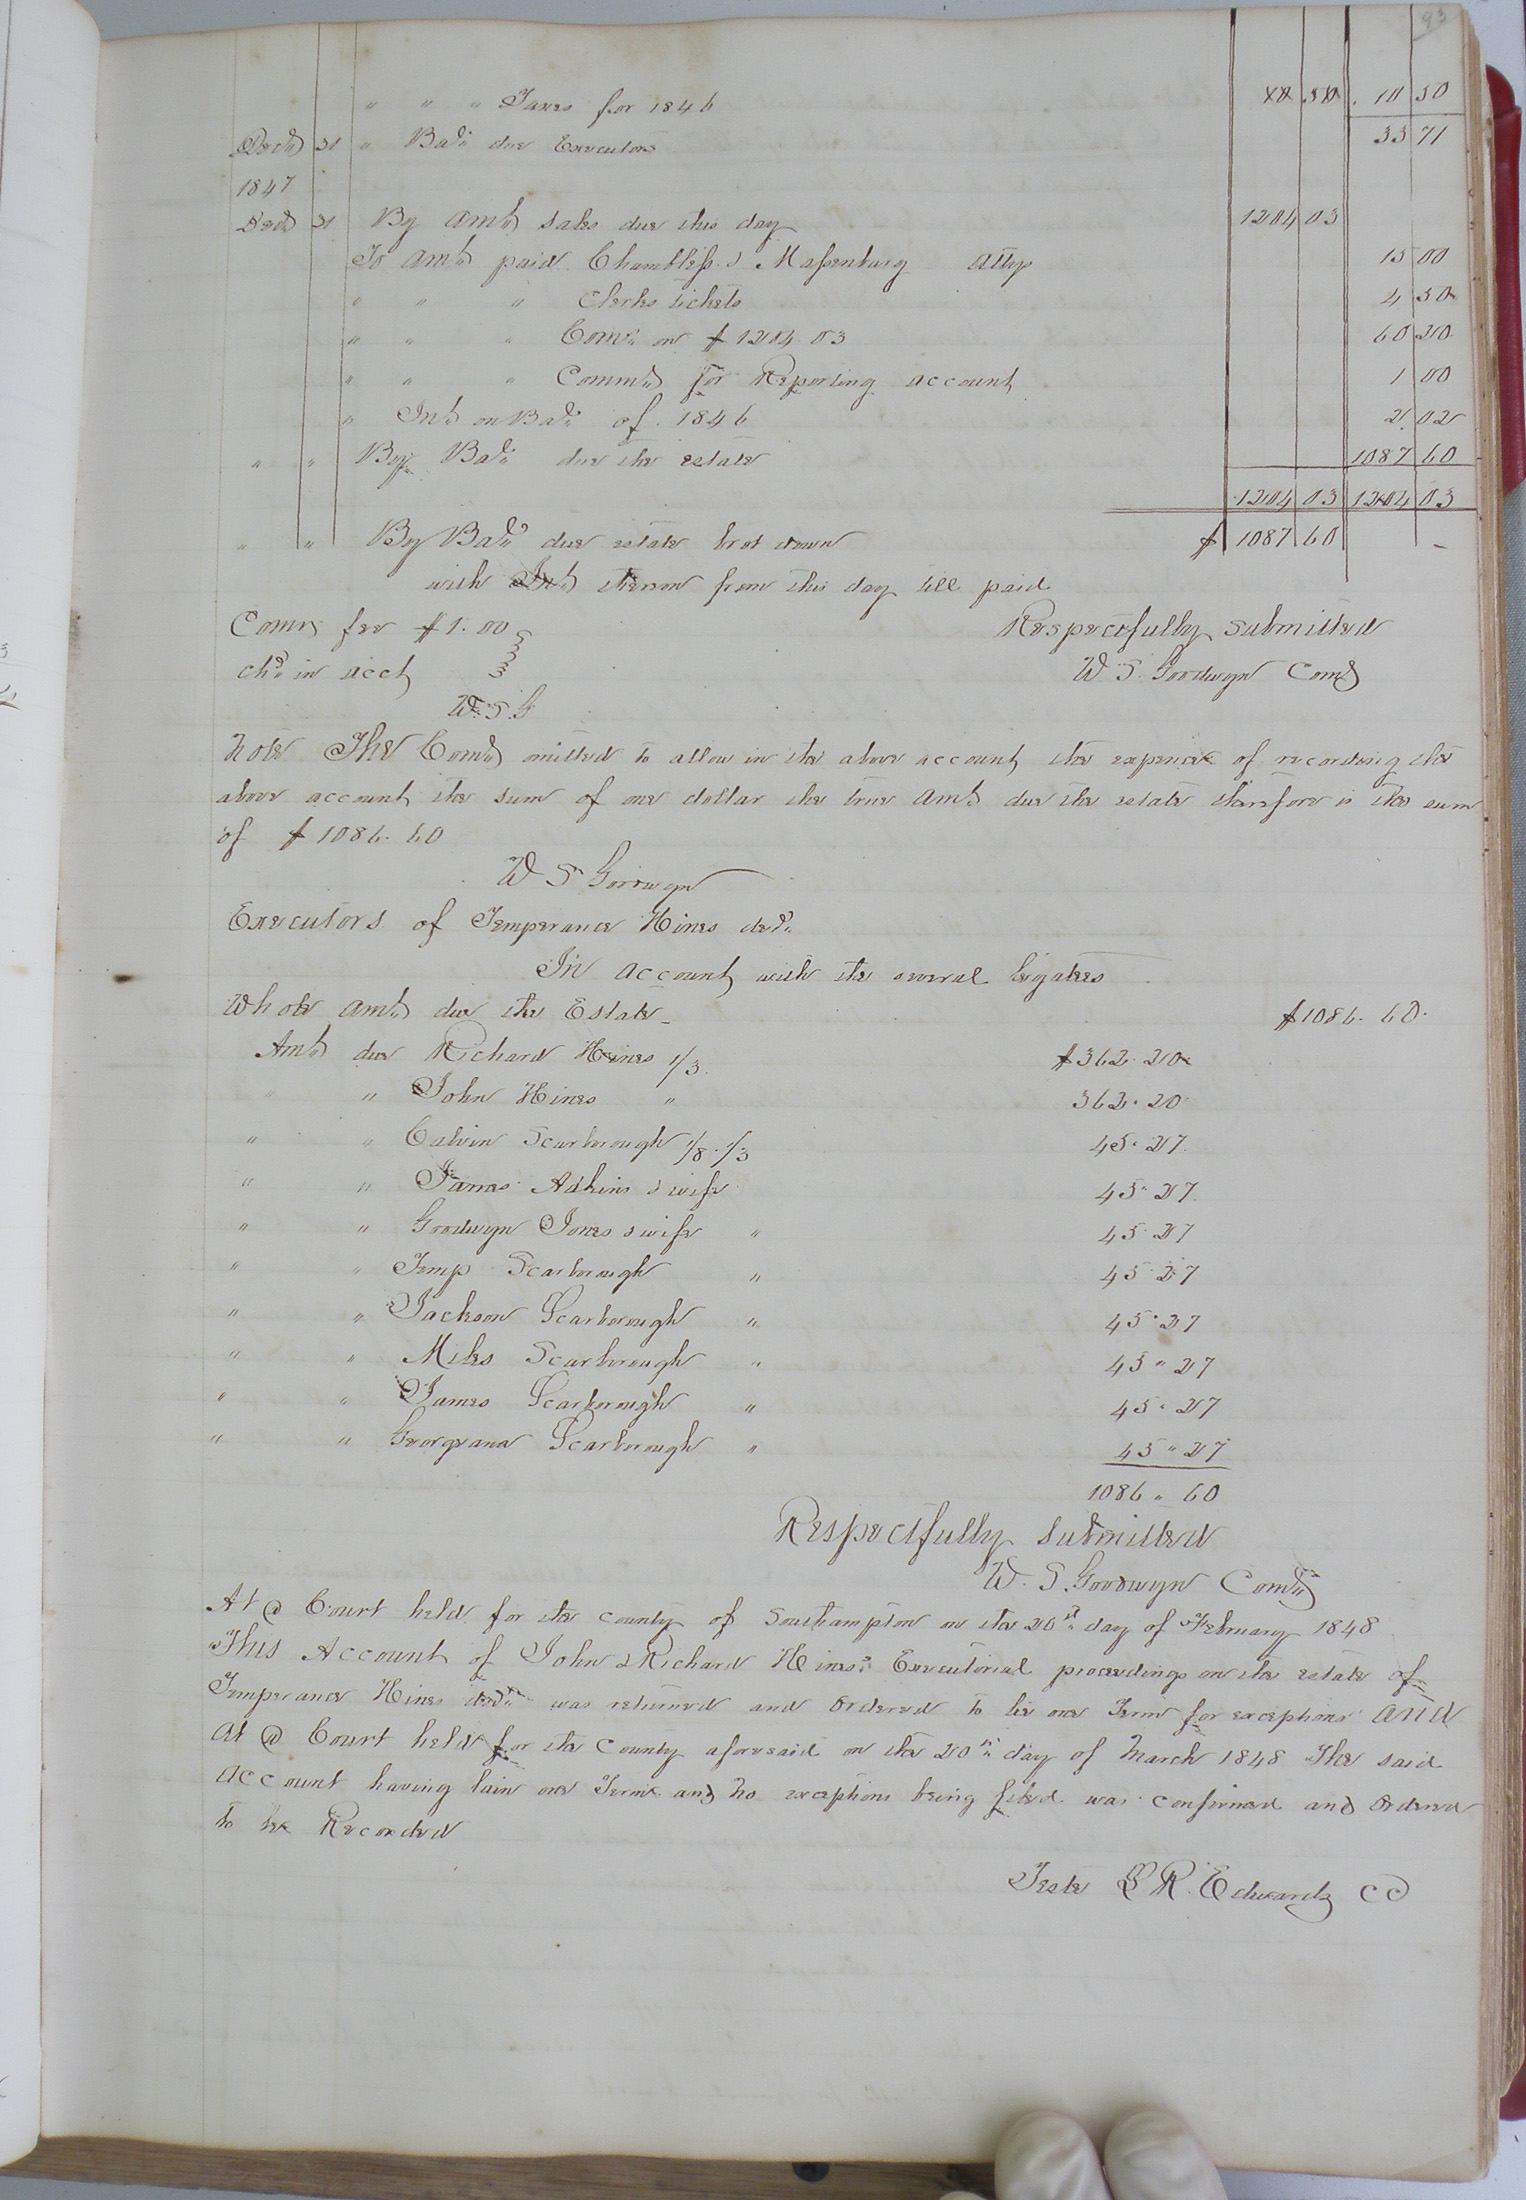 93
" " " Taxes for 1846 10 50 10 50
Decr 31 " Balc due Executors 33 71
1847
Decr 31 By Amt sales due this day 1204 03
To Amt paid Chambliss & Massenburg Attys 15 00
" " " Clerks tickets 4 50
" " " Coms on $1204.03 60 20
" " " Commr for Reporting account 1 00
" Int on Balc of 1846 2 02
" " By Balc due the estate 1087 60
1204 03 1204 03
" " By Balc due estate brot down $ 1087 60 -
with Int thereon from this day till paid
Comrs fee $1.00 Respectfully submitted
chd in acct W. S. Goodwyn Comr
W. S. G
Note The Comr omitted to allow in the above account the expence of recording the
above account the sum of one dollar the true Amt due the estate therefore is the sum
of $1086.60
W S Goodwyn
Executors of Temperance Hines decd
In account with the several legatees
Whole Amt due the Estate $1086.60
Amt due Richard Hines 1/3 $362.20
" " John Hines " 362.20
" " Calvin Scarborough 1/8.1/3 45.27
" " James Adkins & wife 45.27
" " Goodwyn Jones & wife " 45.27
" " Temp Scarborough " 45.27
" " Jackson Scarborough " 45.27
" " Miles Scarborough " 45"27
" " James Scarborough " 45.27
" " Georgeana Scarborough " 45"27
1086"60
Respectfully submitted
W. S. Goodwyn Comr
At a Court held for the county of Southampton on the 20th day of February 1848
This Account of John & Richard Hines' Executorial proceedings on the estate of
Temperance Hines decd was returned and ordered to lie one Term for exceptions and
At a Court held for the County aforesaid on the 20th day of March 1848 The said
Account having lain one Term and no exceptions being filed was confirmed and Ordered
to be Recorded
Teste L R. Edwards CC